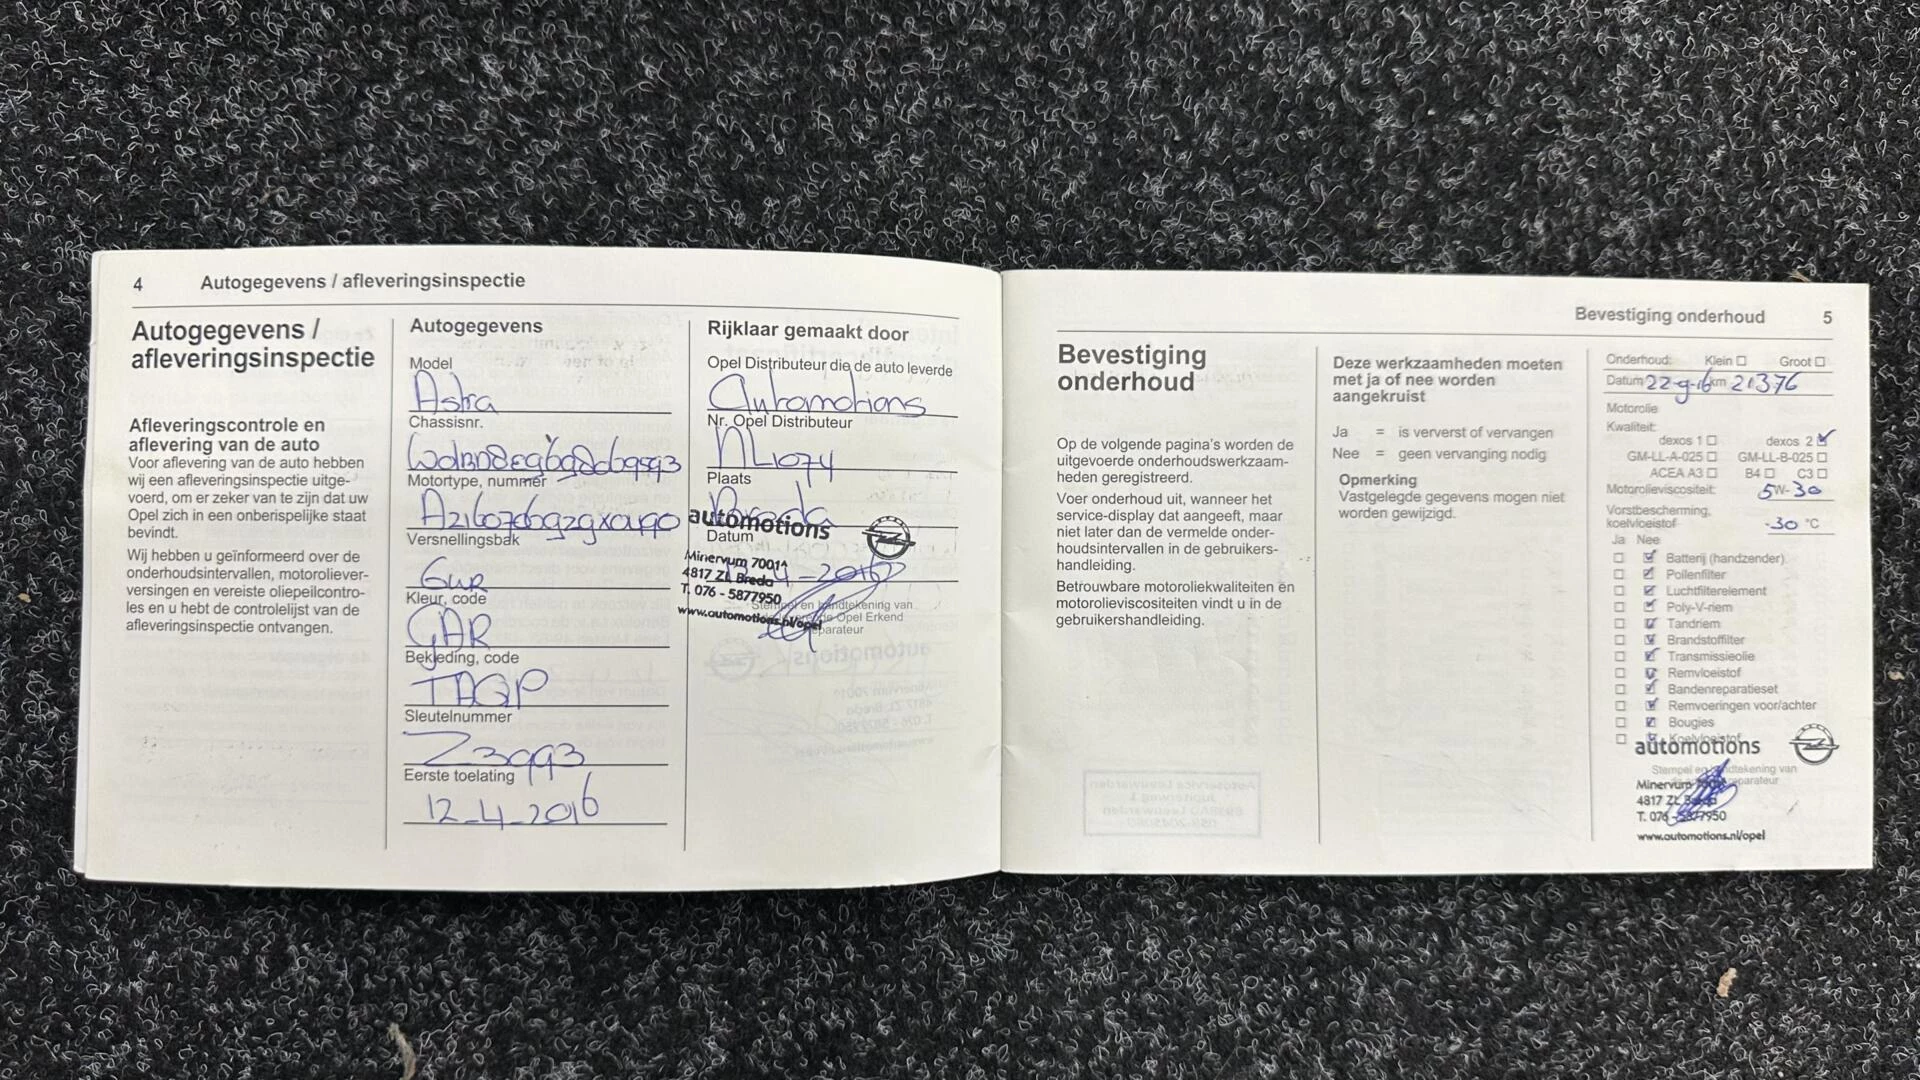 4 Autogegevens / afleveringsinspectie
Autogegevens /
afleveringsinspectie
Afleveringscontrole en
aflevering van de auto
Voor aflevering van de auto hebben
wij een afleveringsinspectie uitge-
voerd, om er zeker van te zijn dat uw
Opel zich in een onberispelijke staat
bevindt.
Wij hebben u geïnformeerd over de
onderhoudsintervallen, motoroliever-
versingen en vereiste oliepeilcontro-
les en u hebt de controlelijst van de
afleveringsinspectie ontvangen.
Autogegevens
Model
Astra
Chassisnr.
Motortype, nummer
Versnellingsbak
Kleur, code
GAR
Bekleding, code
TAQP
Sleutelnummer
Z3993
Eerste toelating
12-4-2016
Rijklaar gemaakt door
Opel Distributeur die de auto leverde
Automotions
Nr. Opel Distributeur
NL1074
Plaats
Breda
automotions
Datum
Minervum 7001
4817 ZL Breda
T. 076 - 5877950
www.automotions.nl/opel
Stempel en handtekening van
Opel Erkend
Bevestiging onderhoud 5
Bevestiging
onderhoud
Op de volgende pagina's worden de
uitgevoerde onderhoudswerkzaam-
heden geregistreerd.
Voer onderhoud uit, wanneer het
service-display dat aangeeft, maar
niet later dan de vermelde onder-
houdsintervallen in de gebruikers-
handleiding.
Betrouwbare motoroliekwaliteiten en
motorolieviscositeiten vindt u in de
gebruikershandleiding.
Deze werkzaamheden moeten
met ja of nee worden
aangekruist
Ja = is ververst of vervangen
Nee = geen vervanging nodig
Opmerking
Vastgelegde gegevens mogen niet
worden gewijzigd.
Onderhoud: Klein Groot
Datum 22-9-16 km 21376
Motorolie
Kwaliteit:
dexos 1 dexos 2
GM-LL-A-025 GM-LL-B-025
ACEA A3 B4 C3
Motorolieviscositeit: 5W-30
Vorstbescherming,
koelvloeistof -30 °C
Ja Nee
Batterij (handzender)
Pollenfilter
Luchtfilterelement
Poly-V-riem
Tandriem
Brandstoffilter
Transmissieolie
Remvloeistof
Bandenreparatieset
Remvoeringen voor/achter
Bougies
Koelvloeistof
automotions
Stempel en handtekening van
Minervum
4817 ZL Breda
T. 076 - 5877950
www.automotions.nl/opel